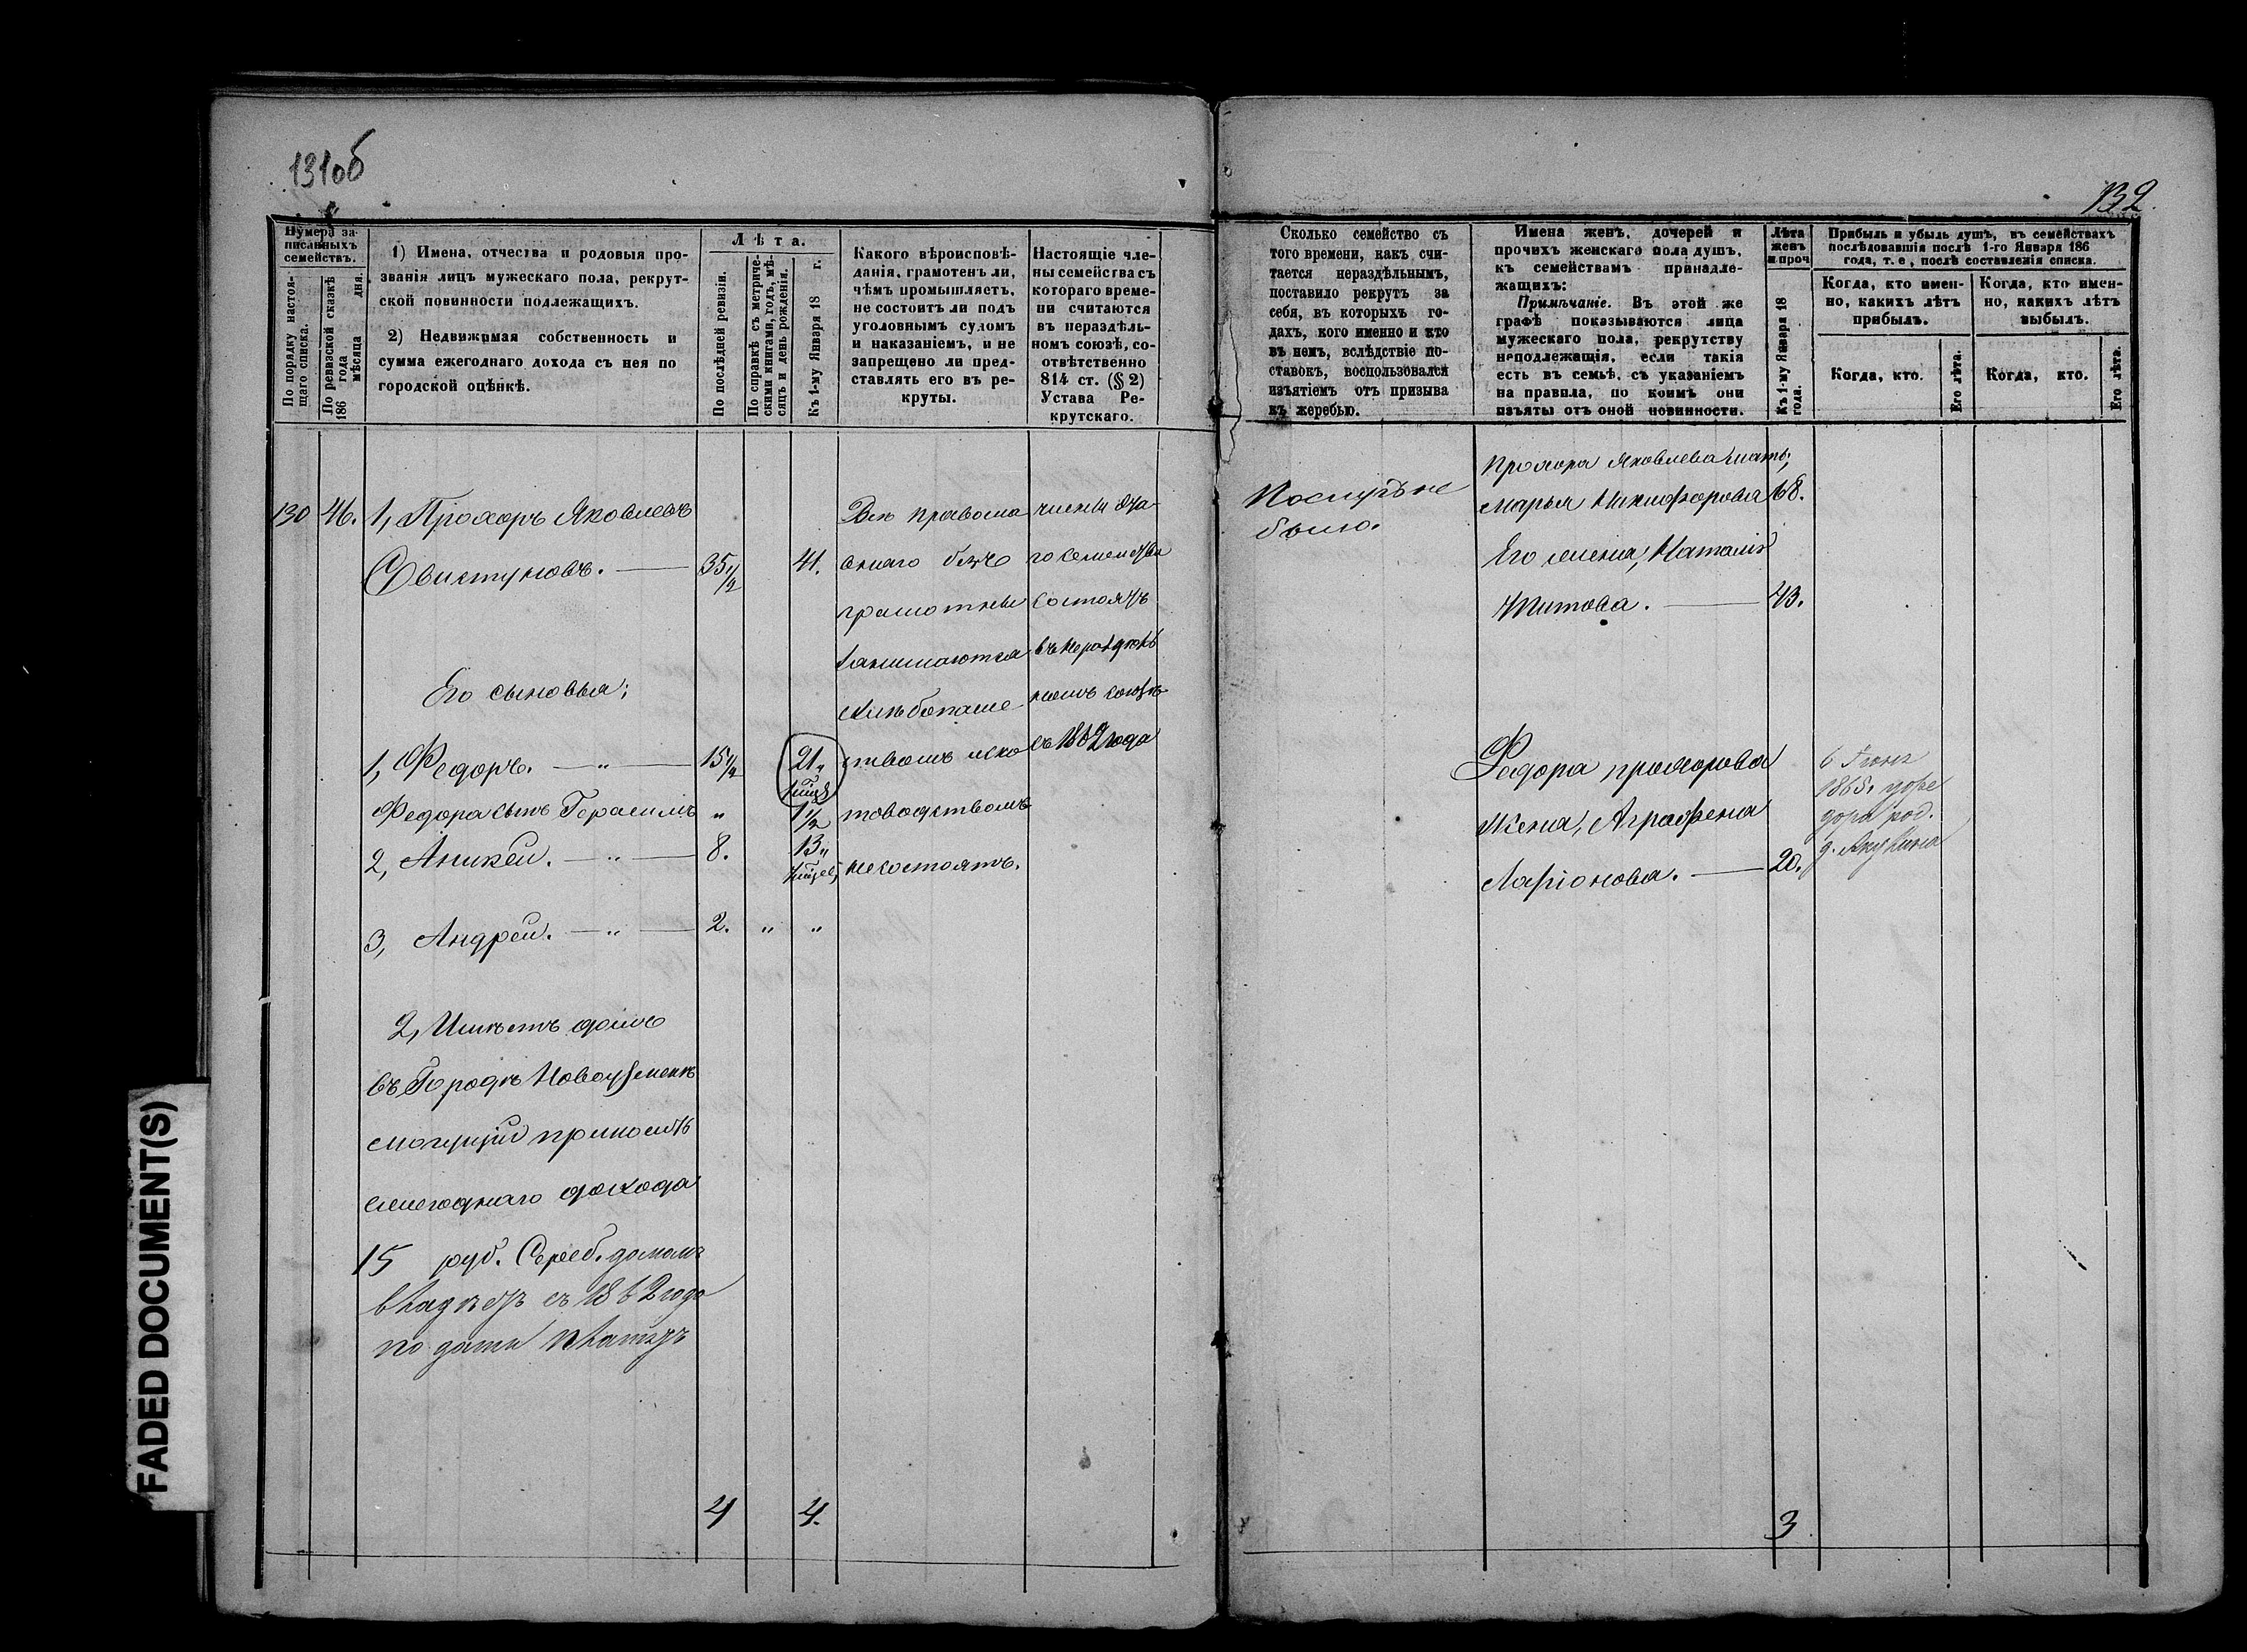 131об
132.
Нумера за-
писанныхъ
семействъ.
По порядку настоя-
щаго списка.
По ревизской сказкѣ
186 года
мѣсяца дня.
1) Имена, отчества и родовыя про-
званія лицъ мужескаго пола, рекрут-
ской повинности подлежащихъ.
2) Недвижимая собственность и
сумма ежегоднаго дохода съ нея по
городской оцѣнкѣ.
Лѣта.
По послѣдней ревизіи.
По справкѣ съ метриче-
скими книгами, годъ, мѣ-
сяцъ и день рожденія.
Къ 1-му Января 18 г.
Какого вѣроисповѣ-
данія, грамотенъ ли,
чѣмъ промышляетъ,
не состоитъ ли подъ
уголовнымъ судомъ
и наказаніемъ, и не
запрещено ли пред-
ставлять его въ ре-
круты.
Настоящіе чле-
ны семейства съ
котораго време-
ни считаются
въ нераздѣль-
номъ союзѣ, со-
отвѣтственно
814 ст. (§ 2)
Устава Ре-
крутскаго.
130 46. 1, Прохоръ Яковлевъ
Свистуновъ. — 35 1/2 41.
Его сыновья;
1, Федоръ. — „ — 15 1/2 21„
Федора сынъ Герасимъ „ 1 1/2
2, Аникей. — „ — 8. 13„
3, Андрей. — „ — 2. „ „
2, Имѣетъ домъ
въ Городѣ Новоузенскѣ
могущій приносить
ежегоднаго дохода
15 руб. Сереб. домомъ
владѣетъ съ 1862 года
подати платитъ
4 4.
Всѣ православ
наго безъ
грамотны
занимаются
хлѣбопаше
ствомъ ско
товодствомъ
не состоятъ.
члены эта-
го семейства
состоятъ
въ нераздѣль
номъ союзѣ
съ 1862 года
Сколько семейство съ
того времени, какъ счи-
тается нераздѣльнымъ,
поставило рекрутъ за
себя, въ которыхъ го-
дахъ, кого именно и кто
въ немъ, вслѣдствіе по-
ставокъ, воспользовался
изъятіемъ отъ призыва
къ жеребью.
Имена женъ, дочерей и
прочихъ женскаго пола душъ,
къ семействамъ принадле-
жащихъ:
Примѣчаніе. Въ этой же
графѣ показываются лица
мужескаго пола, рекрутству
неподлежащія, если такія
есть въ семьѣ, съ указаніемъ
на правила, по коимъ они
изъяты отъ оной повинности.
Лѣта
женъ
и проч
Къ 1-му Января 18
года.
Прибыль и убыль душъ, въ семействахъ
послѣдовавшія послѣ 1-го Января 186
года, т. е., послѣ составленія списка.
Когда, кто имен-
но, какихъ лѣтъ
прибылъ.
Когда, кто.
Его лѣта.
Когда, кто имен-
но, какихъ лѣтъ
выбылъ.
Когда, кто.
Его лѣта.
было.
Прохора Яковлева мать;
Марья Никифорова 68.
Его жена; Наталія
Титова. — 43.
Федора Прохорова
Жена, Аграфена
Ларіонова. — 20.
3
FADED DOCUMENT(S)